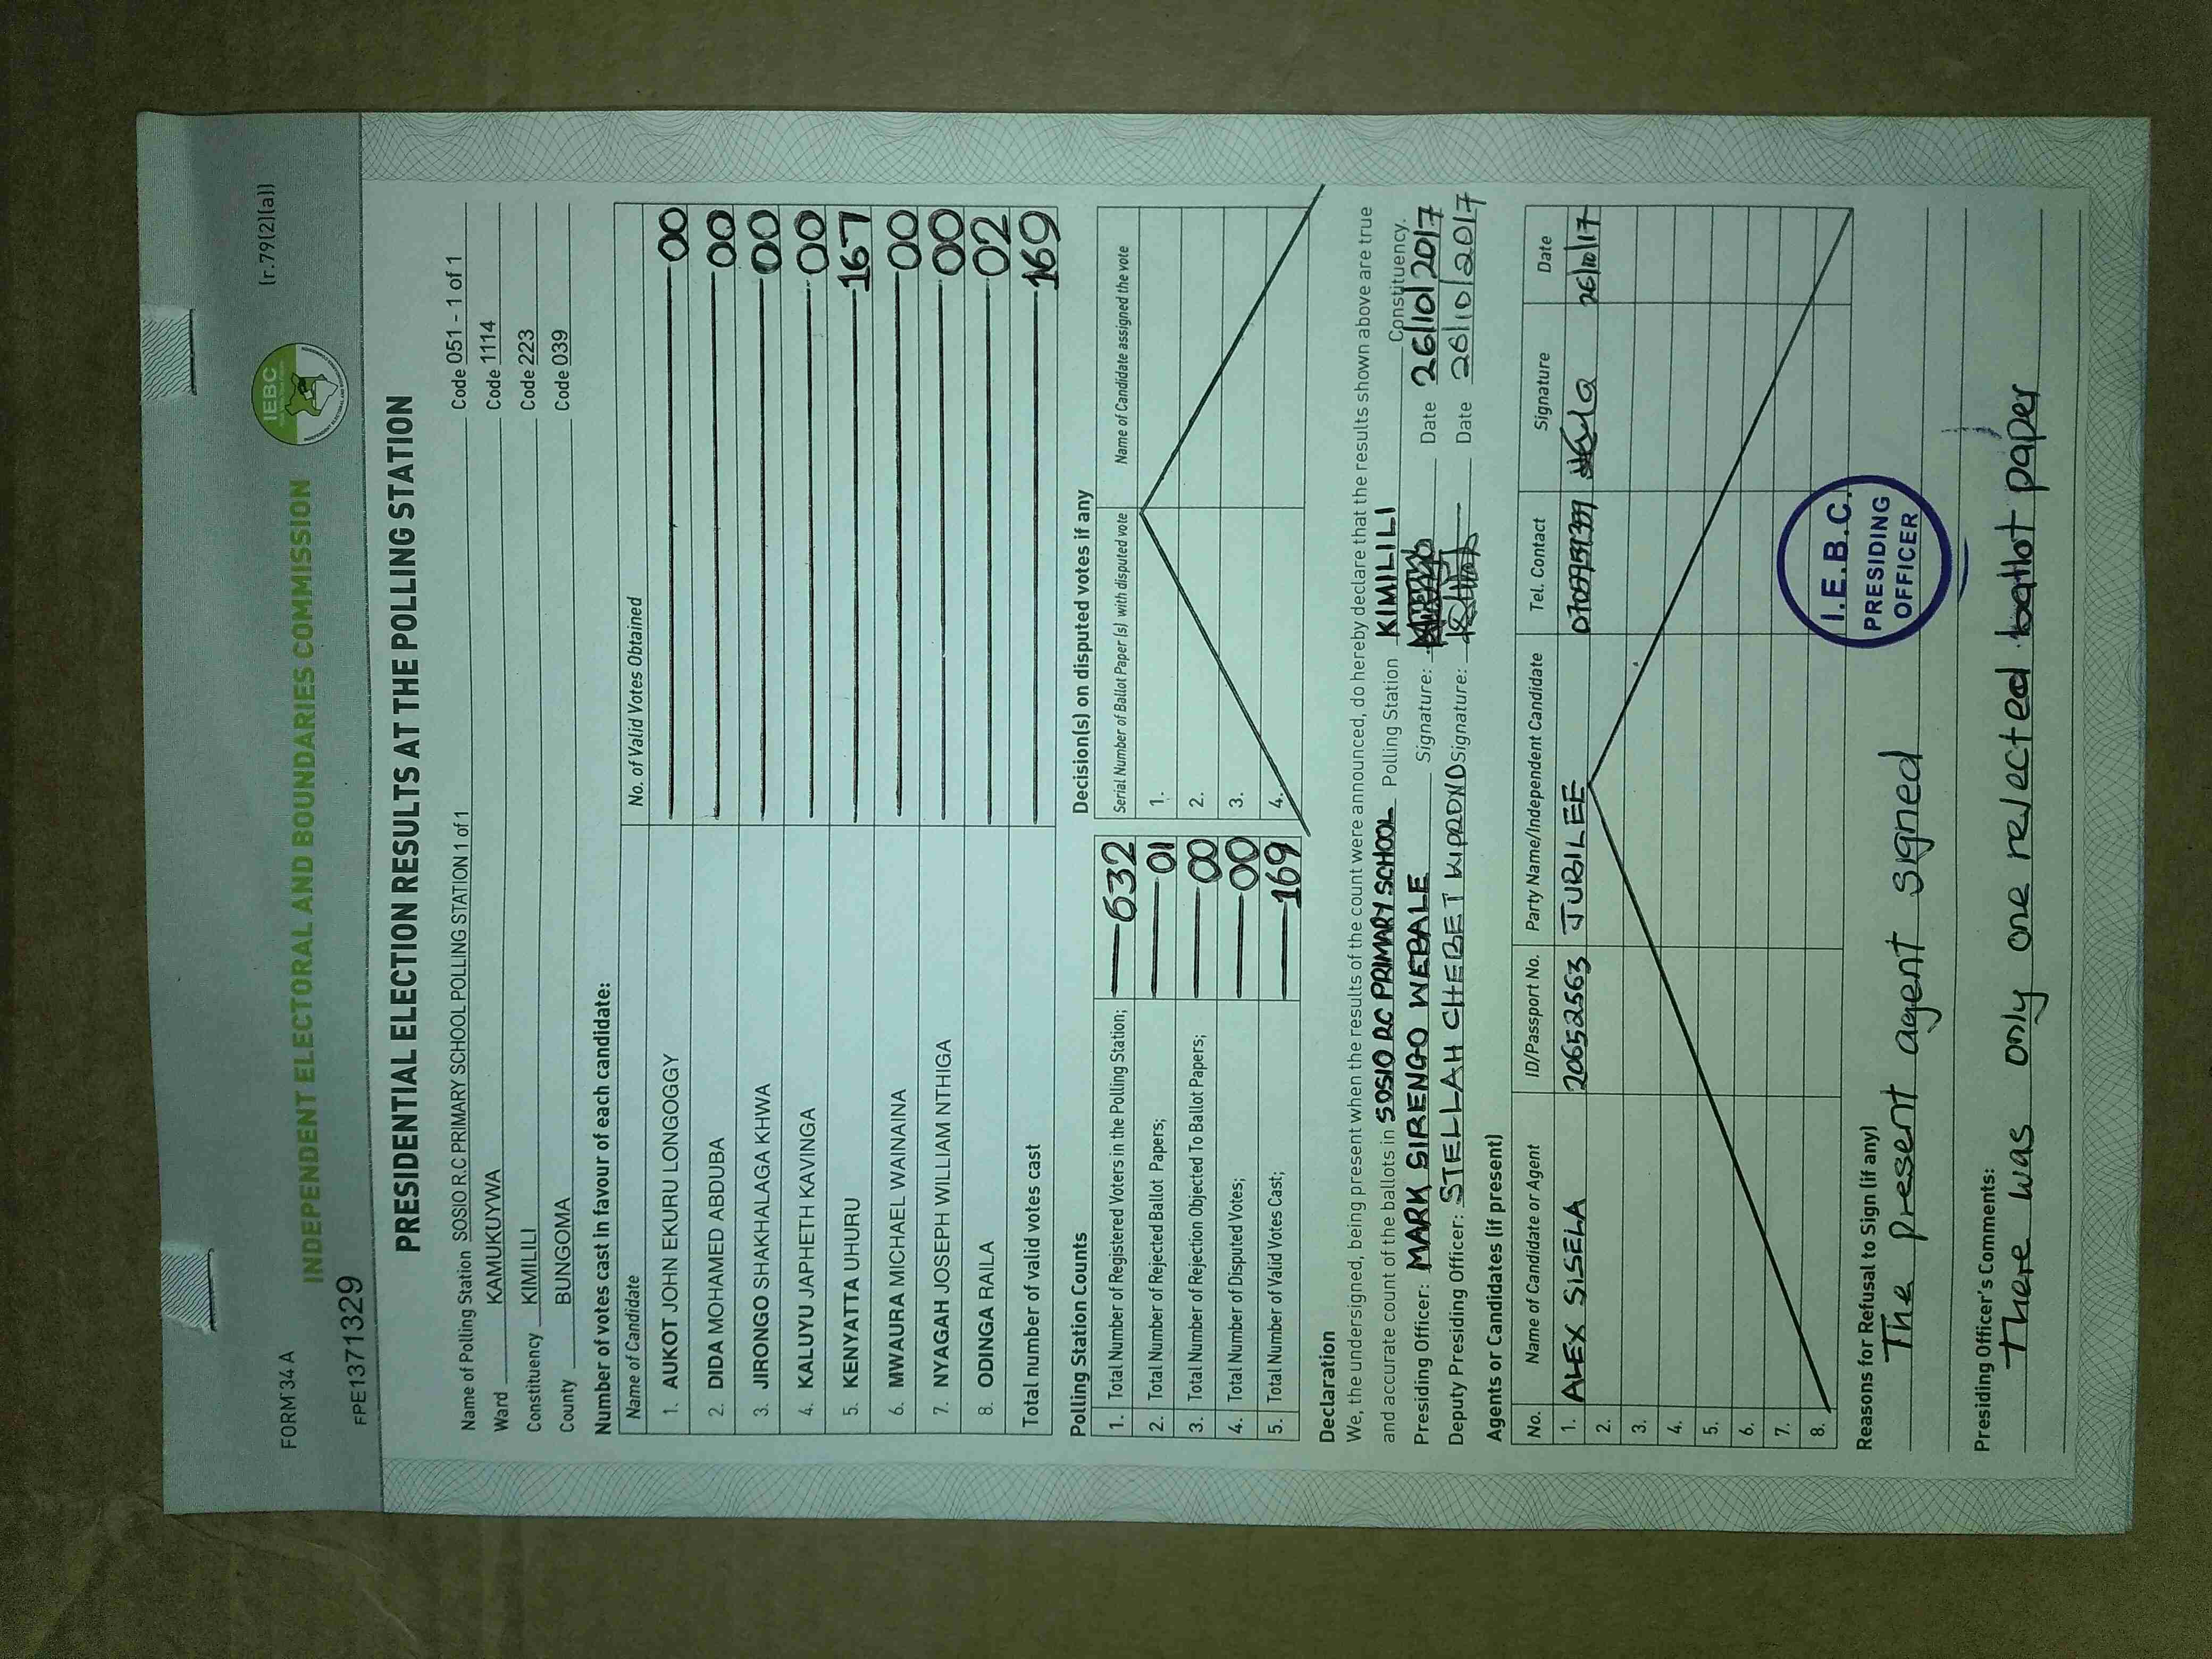 FORM 34 A
(r.79(2)(a))
IEBC
INDEPENDENT ELECTORAL AND BOUNDARIES COMMISSION
FPE1371329
PRESIDENTIAL ELECTION RESULTS AT THE POLLING STATION
Name of Polling Station SOSIO R.C PRIMARY SCHOOL POLLING STATION 1 of 1 Code 051 - 1 of 1
Ward KAMUKUYWA Code 1114
Constituency KIMILILI Code 223
County BUNGOMA Code 039
Number of votes cast in favour of each candidate:
Name of Candidate No. of Valid Votes Obtained
1. AUKOT JOHN EKURU LONGOGGY 00
2. DIDA MOHAMED ABDUBA 00
3. JIRONGO SHAKHALAGA KHWA 00
4. KALUYU JAPHETH KAVINGA 00
5. KENYATTA UHURU 167
6. MWAURA MICHAEL WAINAINA 00
7. NYAGAH JOSEPH WILLIAM NTHIGA 00
8. ODINGA RAILA 02
Total number of valid votes cast 169
Polling Station Counts
1. Total Number of Registered Voters in the Polling Station; 632
2. Total Number of Rejected Ballot Papers; 01
3. Total Number of Rejection Objected To Ballot Papers; 00
4. Total Number of Disputed Votes; 00
5. Total Number of Valid Votes Cast; 169
Decision(s) on disputed votes if any
Serial Number of Ballot Paper (s) with disputed vote Name of Candidate assigned the vote
1.
2.
3.
4.
Declaration
We, the undersigned, being present when the results of the count were announced, do hereby declare that the results shown above are true
and accurate count of the ballots in SOSIO RC PRIMARY SCHOOL Polling Station KIMILILI Constituency.
Presiding Officer: MARK SIRENGO WEBALE Signature: Date 26/10/2017
Deputy Presiding Officer: STELLAH CHEBET Signature: Date 26/10/2017
Agents or Candidates (if present)
No. Name of Candidate or Agent ID/Passport No. Party Name/Independent Candidate Tel. Contact Signature Date
1. ALEX SISELA 20652563 JUBILEE 26/10/17
2.
3.
4.
5.
6.
7.
8.
I.E.B.C.
PRESIDING
OFFICER
Reasons for Refusal to Sign (if any)
The present agent signed
Presiding Officer's Comments:
There was only one rejected ballot paper